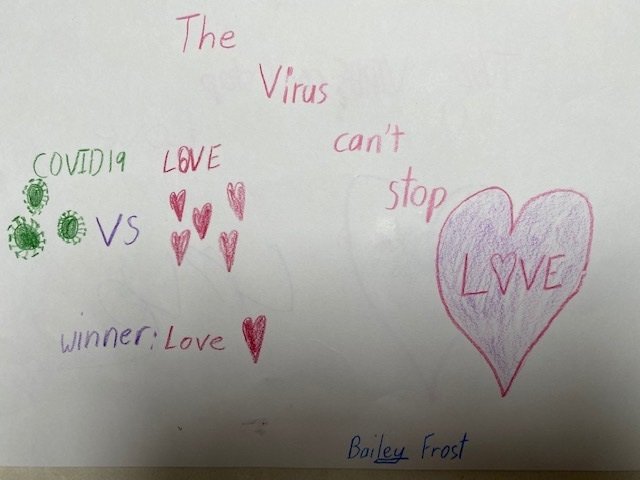 The
Virus
can't
stop
LOVE
COVID19 LOVE
VS
winner: Love
Bailey Frost